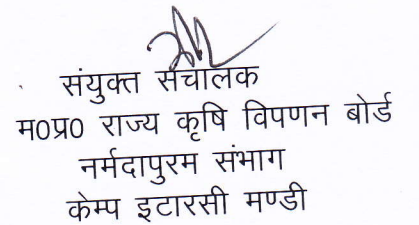 संयुक्त संचालक
म0प्र0 राज्य कृषि विपणन बोर्ड
नर्मदापुरम संभाग
केम्प इटारसी मण्डी